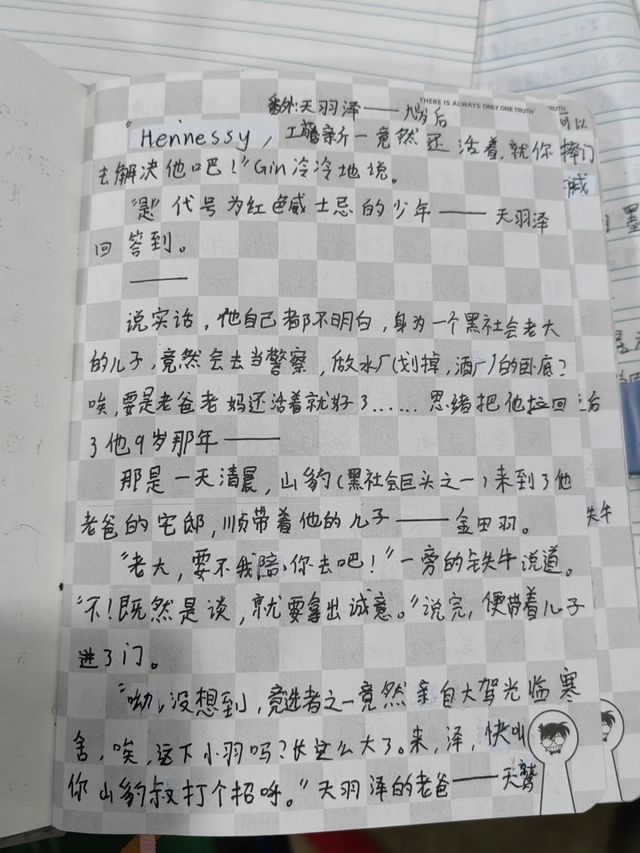 THERE IS ALWAYS ONLY ONE TRUTH
TRUTH
番外:天羽泽——九岁后
"Hennessy, 工藤新一竟然还活着,就你择门
可以
去解决他吧!"Gin冷冷地说。
"是"代号为红色威士忌的少年——天羽泽
回答到。
——
说实话,他自己都不明白,身为一个黑社会老大
的儿子,竟然会去当警察,做水厂(划掉,酒厂)的卧底?
唉,要是老爸老妈还活着就好了……思绪把他拉回
了他9岁那年——
那是一天清晨,山豹(黑社会巨头之一)来到了他
老爸的宅邸,顺带着他的儿子——金田羽。
"老大,要不我陪你去吧!"一旁的铁牛说道。
铁牛
"不!既然是谈,就要拿出诚意。"说完,便带着儿子
进了门。
"呦,没想到,竞选者之一竟然亲自大驾光临寒
舍,唉,这下小羽吗?长这么大了。来,泽,快叫
你山豹叔打个招呼。"天羽泽的老爸——天鹫